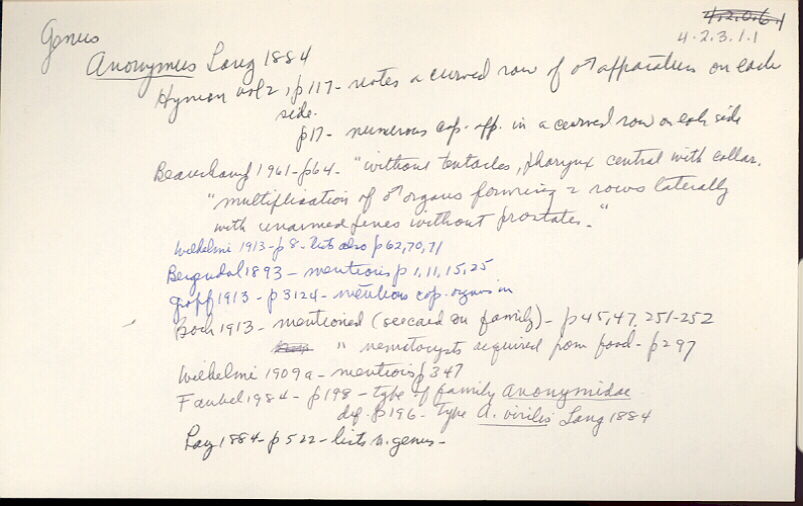 4.2.0.6.1
4.2.3.1.1
Genus
Anonymus Lang 1884
Hyman vol 2, p117 - notes a curved row of ♂ apparatus on each
side.
p17 - numerous cop. app. in a curved row on each side
Beauchamp 1961 - p64 - "without tentacles, pharynx central with collar.
"multiplication of ♂ organs forming 2 rows laterally
with unarmed penes without prostates."
Wilhelmi 1913 - p8 - lists also p62,70,71
Bergendal 1893 - mentions p1,11,15,25
Graff 1913 - p3124 - mentions cop. organs in
Bock 1913 - mentioned (see card on family) - p45,47,251-252
" nematocysts acquired from food - p297
Wilhelmi 1909a - mentions p347
Faubel 1984 - p198 - type of family Anonymidae
def. p196 - Type A. virilis Lang 1884
Lang 1884 - p522 - lists n. genus -